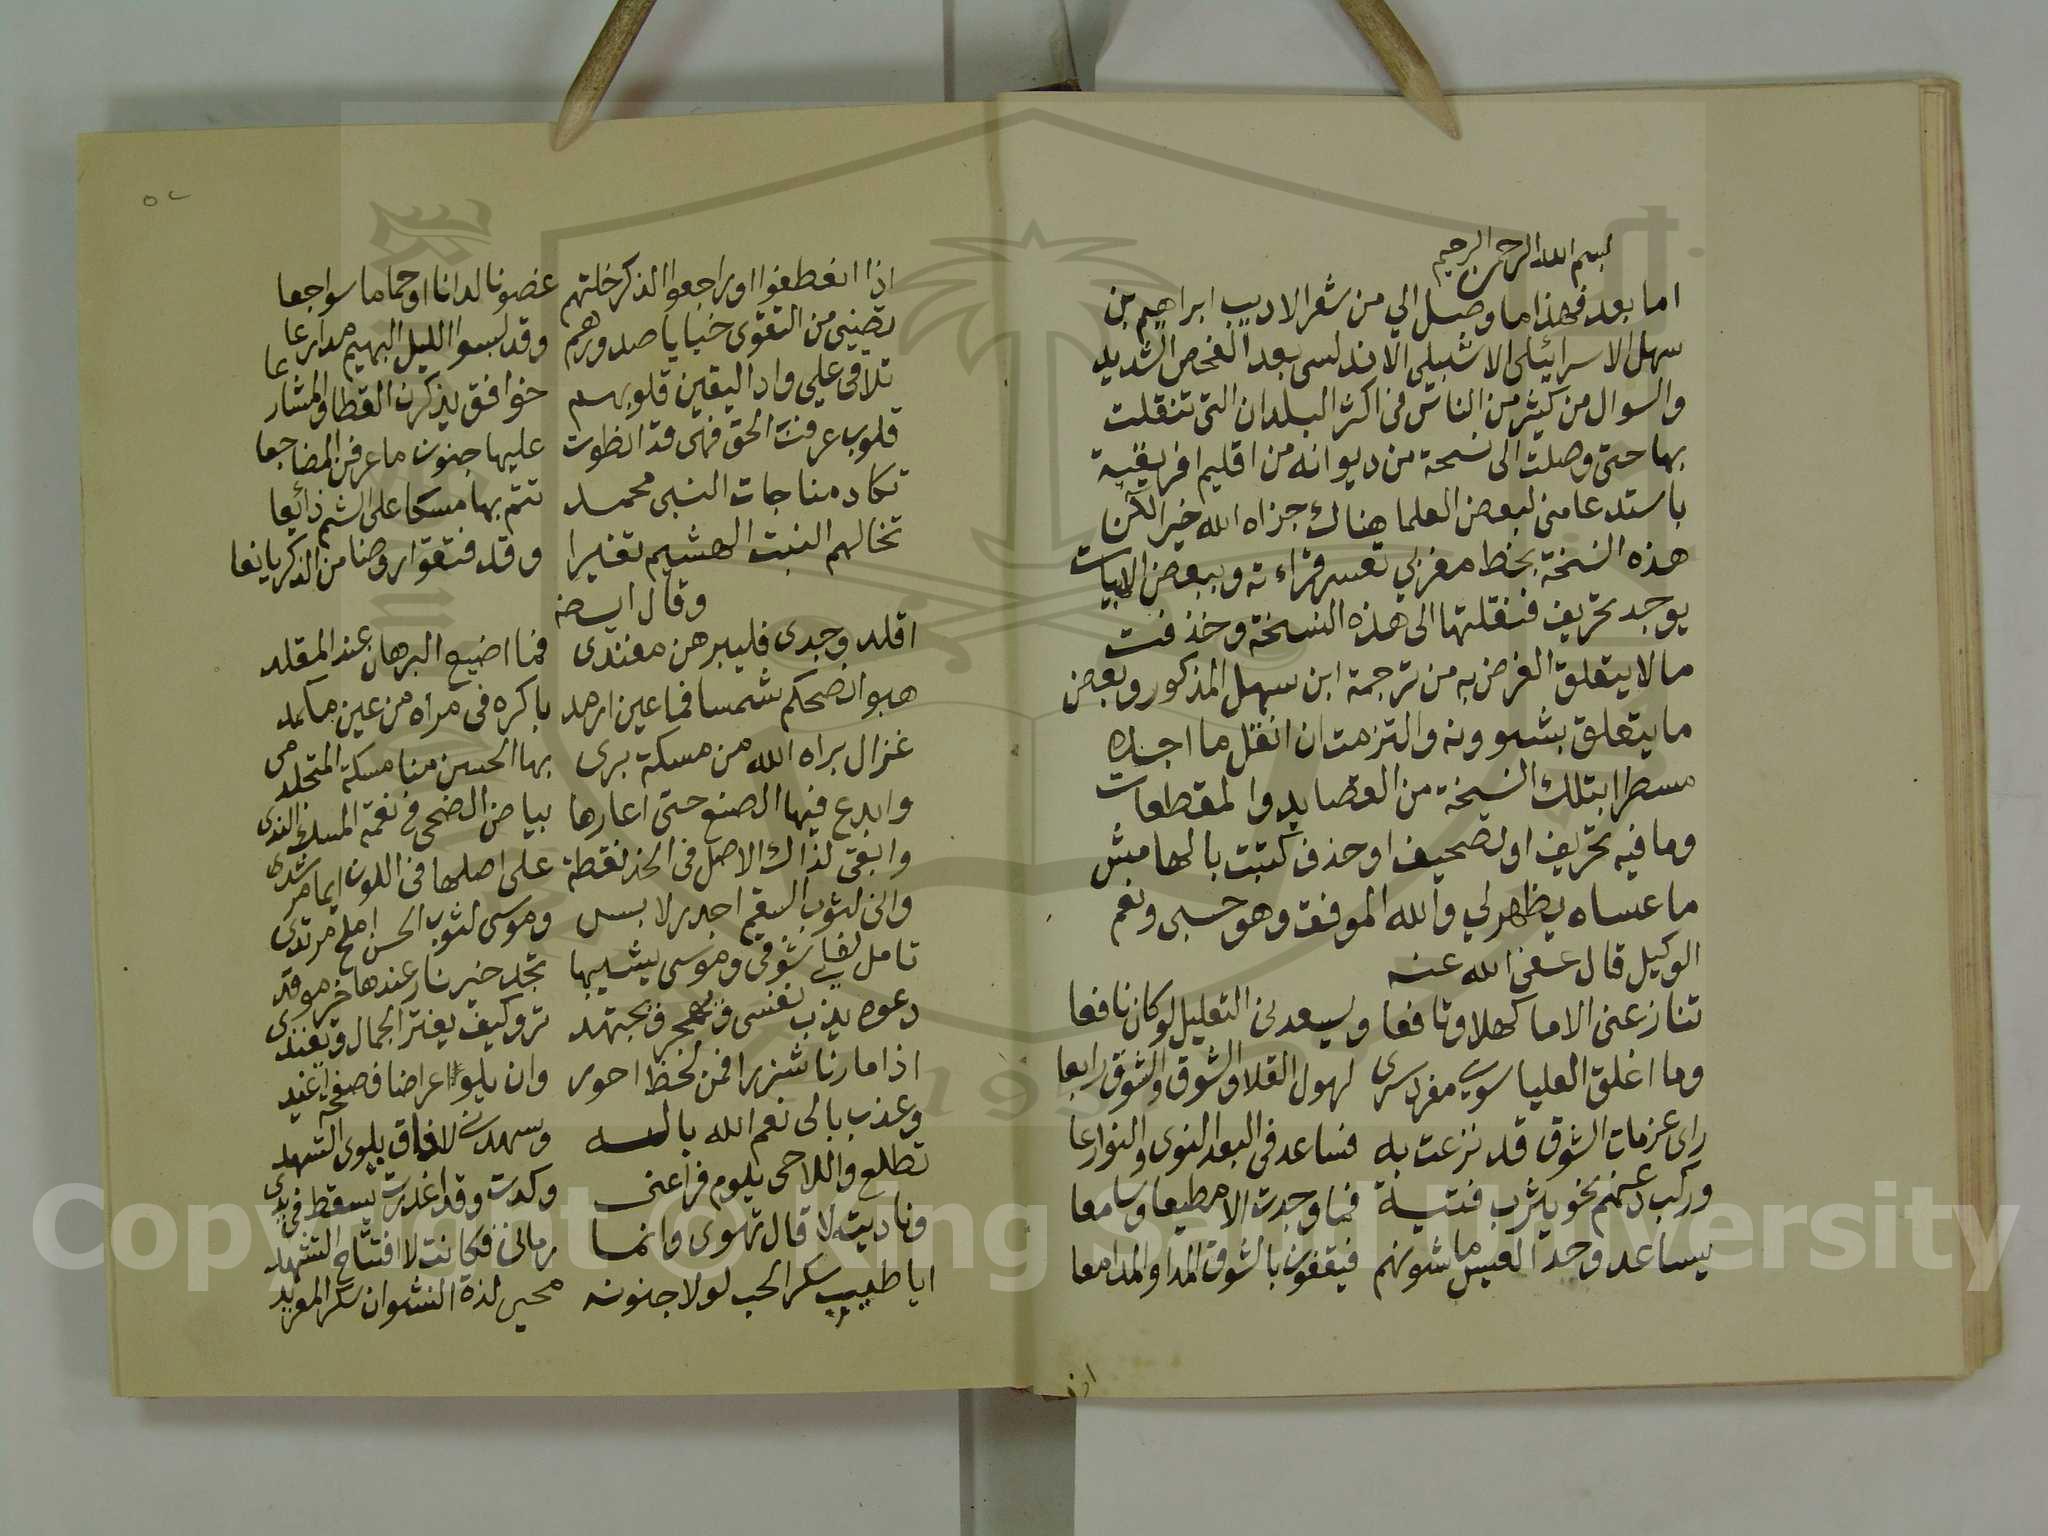 بسم الله الرحمن الرحيم
اما بعد فهذا ما وصل الي من شعر الاديب ابراهيم بن
سهل الاسرائيلي الاشبيلي الاندلسي بعد الفحص الشديد
والسوال من كثير من الناس في اكثر البلدان التي تنقلت
بها حتى وصلت الى نسخة من ديوانه من اقليم افريقية
باستدعا مني لبعض العلما هناك جزاه الله خيرا لكن
هذه النسخة بخط مغربي تعسر قراءته وببعض الابيات
يوجد تحريف فنقلتها الى هذه النسخة وحذفت
ما لا يتعلق الغرض به من ترجمة ابن سهل المذكور وبعض
ما يتعلق بشوونه والتزمت ان انقل ما اجده
مسطرا بتلك النسخة من القصايد والمقطعات
وما فيه تحريف او تصحيف او حذف كتبت بالهامش
ما عساه يظهر لي والله الموفق وهو حسبي ونعم
الوكيل قال عفى الله عنه
تنازعني الاما كهلا ويافعا ويسعدني التعليل لو كان نافعا
وما اغلق العليا سوى مفرد سرى لهول الفلا والشوق والشوق رابعا
راى عزمات الشوق قد نزعت به فساعد في البعد النوى والنوازعا
وركب دعتهم نحو يثرب فتية فما وجدت الا مطيعا وسامعا
يساعد وخد العيس ما شونهم فيقفون بالشوق المدا والمدامعا
اذا
٥٢
اذا انعطفوا او راجعوا الذكر خلتهم غصونا لدانا او حماما سواجعا
تضيئ من التقوى خبايا صدورهم وقد لبسوا الليل البهيم مدارعا
تلاقى على واد اليقين قلوبهم خوافق يذكرن القطا والمشارعا
قلوب عرفت الحق فهي قد انطوت عليها جنوب ما عرفن المضاجعا
تكاد مناجات النبي محمد تنم بها مسكا على الشم ذائعا
تخالهم النبت الهشيم تغيرا وقد فتقوا روضا من الذكر يانعا
وقال ايضه
اقلد وجدى فليبرهن مفندى فما اضيع البرهان عند المقلد
هبوا نصحكم شمسا فما عين ارمد باكره في مراه من عين مكمد
غزال براه الله من مسكة برى بها الحسن منا مسكة المتجلد
وابدع فيها الصنع حتى اعارها بياض الضحى في نعمة المسك الندى
وابقى لذاك الاصل في الخد نقطة على اصلها في اللون ايما مرشد
واني لثوب السقم اجدر لابس وموسى لثوب الحسن املح مرتدى
تامل لظى شوقي وموسى يشبها تجد خير نار عندها خير موقد
دعوه يذب نفسى ويهجر ويجتهد تروكيف يعتز الجمال ويعتدى
اذا ما رنا شزرا فمن لحظ احور وان يلو اعراضا فصفحة اغيد
وعذب بالى نعم الله باله وسهدني لا ذاق بلوى التسهد
تطلع واللاحى يلوم فراعنى وكدت وقد اغذرت يسقط في يدى
وناديت لا قال تهوى وانما رمانى فكانت لا افتتاح التشهد
ايا طيب سكر الحب لولا جنونه محى لذة النشوان سكر المعربد
Copyright © King Saud University
1957